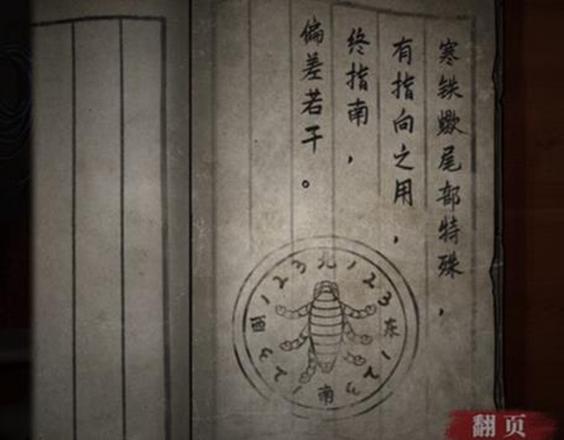 寒铁蠍尾部特殊，
有指向之用，
终指南，
偏差若干。
北 1 2 3 东 1 2 3 南 1 2 3 西 1 2 3
翻页